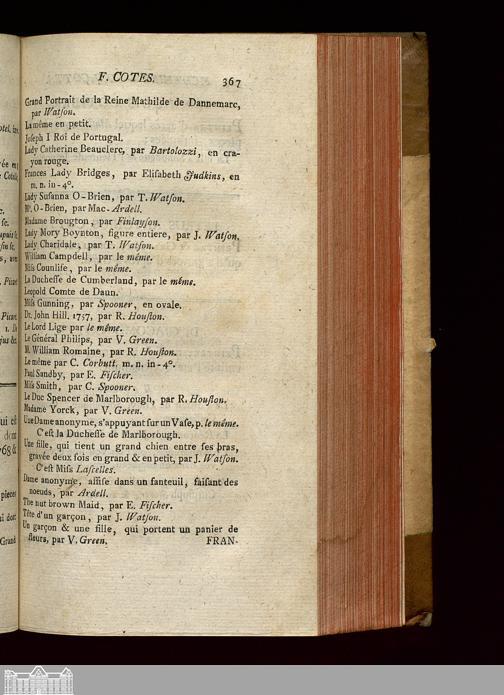 F. COTES.
367
Grand Portrait de la Reine Mathilde de Dannemarc,
par Watſon.
La même en petit.
Joſeph I Roi de Portugal.
Lady Catherine Beauclerc, par Bartolozzi, en cra-
yon rouge.
Frances Lady Bridges, par Eliſabeth Judkins, en
m. n. in-4°.
Lady Suſanna O-Brien, par T. Watſon.
Mr. O-Brien, par Mac-Ardell.
Madame Brougton, par Finlayſon.
Lady Mory Boynton, figure entiere, par J. Watſon.
Lady Charidale, par T. Watſon.
William Campdell, par le même.
Miſs Counliſe, par le même.
La Ducheſſe de Cumberland, par le même.
Leopold Comte de Daun.
Miſs Gunning, par Spooner, en ovale.
Dr. John Hill. 1757, par R. Houſton.
Le Lord Lige par le même.
Le Général Philips, par V. Green.
M. William Romaine, par R. Houſton.
Le même par C. Corbutt, m. n. in-4°.
Paul Sandby, par E. Fiſcher.
Miſs Smith, par C. Spooner.
Le Duc Spencer de Marlborough, par R. Houſton.
Madame Yorck, par V. Green.
Une Dame anonyme, s'appuyant ſur un Vaſe, p. le même.
C'eſt la Ducheſſe de Marlborough.
Une fille, qui tient un grand chien entre ſes bras,
gravée deux fois en grand & en petit, par J. Watſon.
C'eſt Miſs Laſcelles.
Dame anonyme, aſſiſe dans un fanteuil, faiſant des
noeuds, par Ardell.
The nut brown Maid, par E. Fiſcher.
Tête d'un garçon, par J. Watſon.
Un garçon & une fille, qui portent un panier de
fleurs, par V. Green.
FRAN-